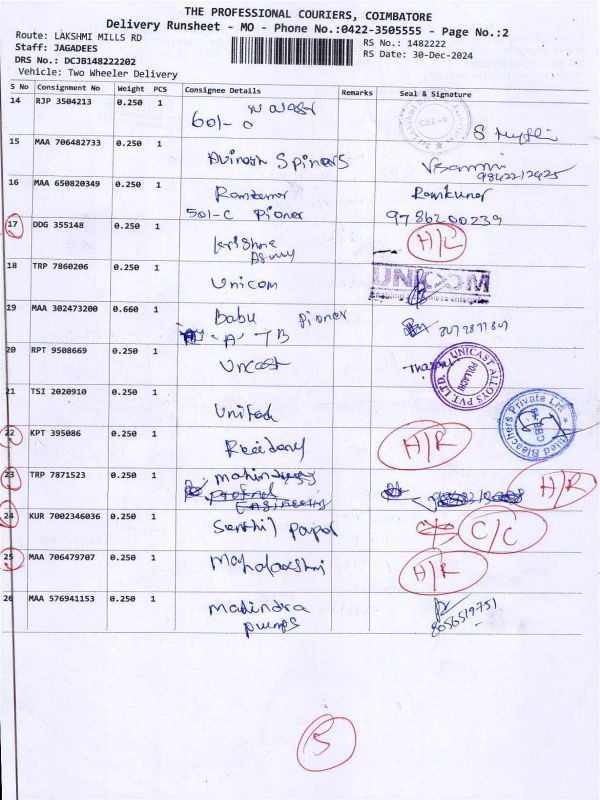 THE PROFESSIONAL COURIERS, COIMBATORE
Delivery Runsheet - MO - Phone No.:0422-3505555 - Page No.:2
Route: LAKSHMI MILLS RD
RS No.: 1482222
Staff: JAGADEES
RS Date: 30-Dec-2024
DRS No.: DCJB148222202
Vehicle: Two Wheeler Delivery
S No Consignment No Weight PCS Consignee Details Remarks Seal & Signature
14 RJP 3504213 0.250 1
601- C
15 MAA 706482733 0.250 1
Avinash Spiners
9842212425
16 MAA 650820349 0.250 1
Ramkumar
501-C Pioner 9786200239
17 DDG 355148 0.250 1
Krishna H/L
Agency
18 TRP 7860206 0.250 1
Unicom UNICOM
19 MAA 302473200 0.660 1
Babu Pioner
"A" 7B
20 RPT 9508669 0.250 1
Unicast UNICAST ALLOYS PVT. LTD.
POLLACHI
21 TSI 2020910 0.250 1
United Allied Bleachers Private Ltd
CBE
22 KPT 395086 0.250 1
Residency H/R
23 TRP 7871523 0.250 1
H/R
24 KUR 7002346036 0.250 1
Senthil C/C
25 MAA 706479707 0.250 1
Mahalakshmi H/R
26 MAA 576941153 0.250 1
Mahindra
Pumps 8056519751
5